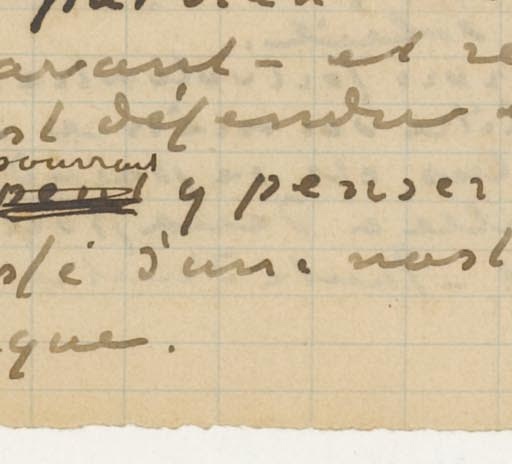 avant - et re
st défendre
pourrais
peut y penser
d'une nost
que.